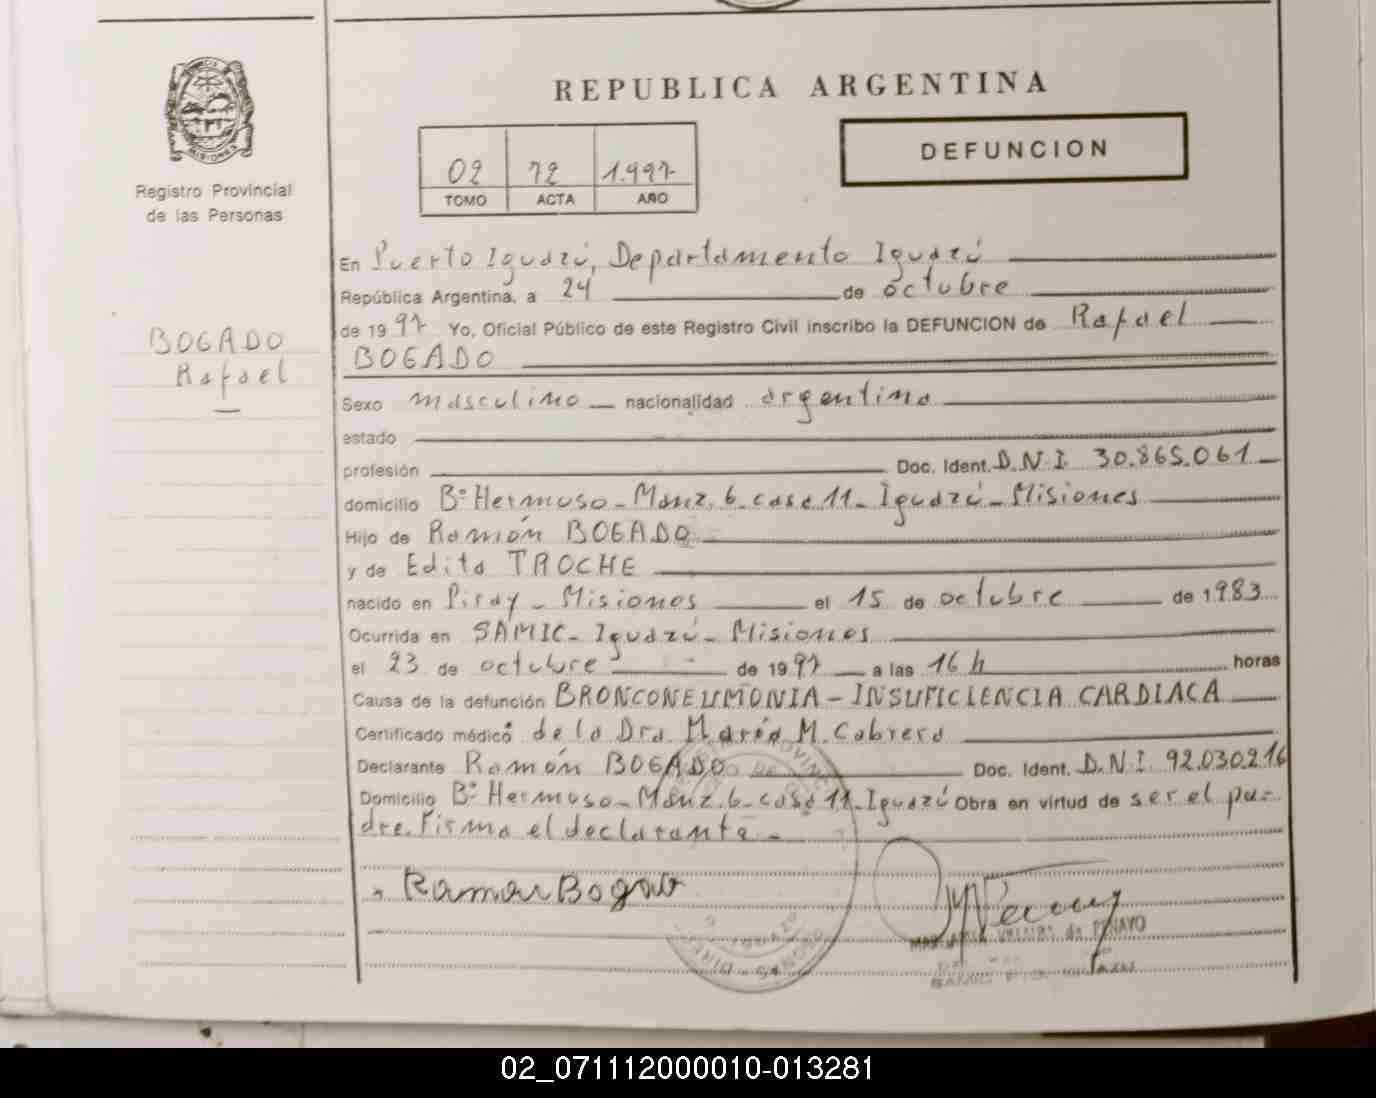 REPUBLICA ARGENTINA
DEFUNCION
02 72 1.997
TOMO ACTA AÑO
MISIONES
Registro Provincial
de las Personas
BOGADO
Rafael
En Puerto Iguazú, Departamento Iguazú
República Argentina, a 24 de octubre
de 1997 Yo, Oficial Público de este Registro Civil inscribo la DEFUNCION de Rafael
BOGADO
Sexo masculino nacionalidad argentina
estado
profesión Doc. Ident. D.N.I. 30.865.061
domicilio Bº Hermoso - Manz. 6 - casa 11 - Iguazú - Misiones
Hijo de Ramón BOGADO
y de Edita TROCHE
nacido en Piray - Misiones el 15 de octubre de 1983
Ocurrida en SAMIC - Iguazú - Misiones
el 23 de octubre de 1997 a las 16 h horas
Causa de la defunción BRONCONEUMONIA - INSUFICIENCIA CARDIACA
Certificado médico de la Dra. María M. Cabrera
Declarante Ramón BOGADO Doc. Ident. D.N.I. 92.030.216
Domicilio Bº Hermoso - Manz. 6 - casa 11 - Iguazú Obra en virtud de ser el pa-
dre. Firma el declarante -
Ramon Bogado
02_071112000010-013281